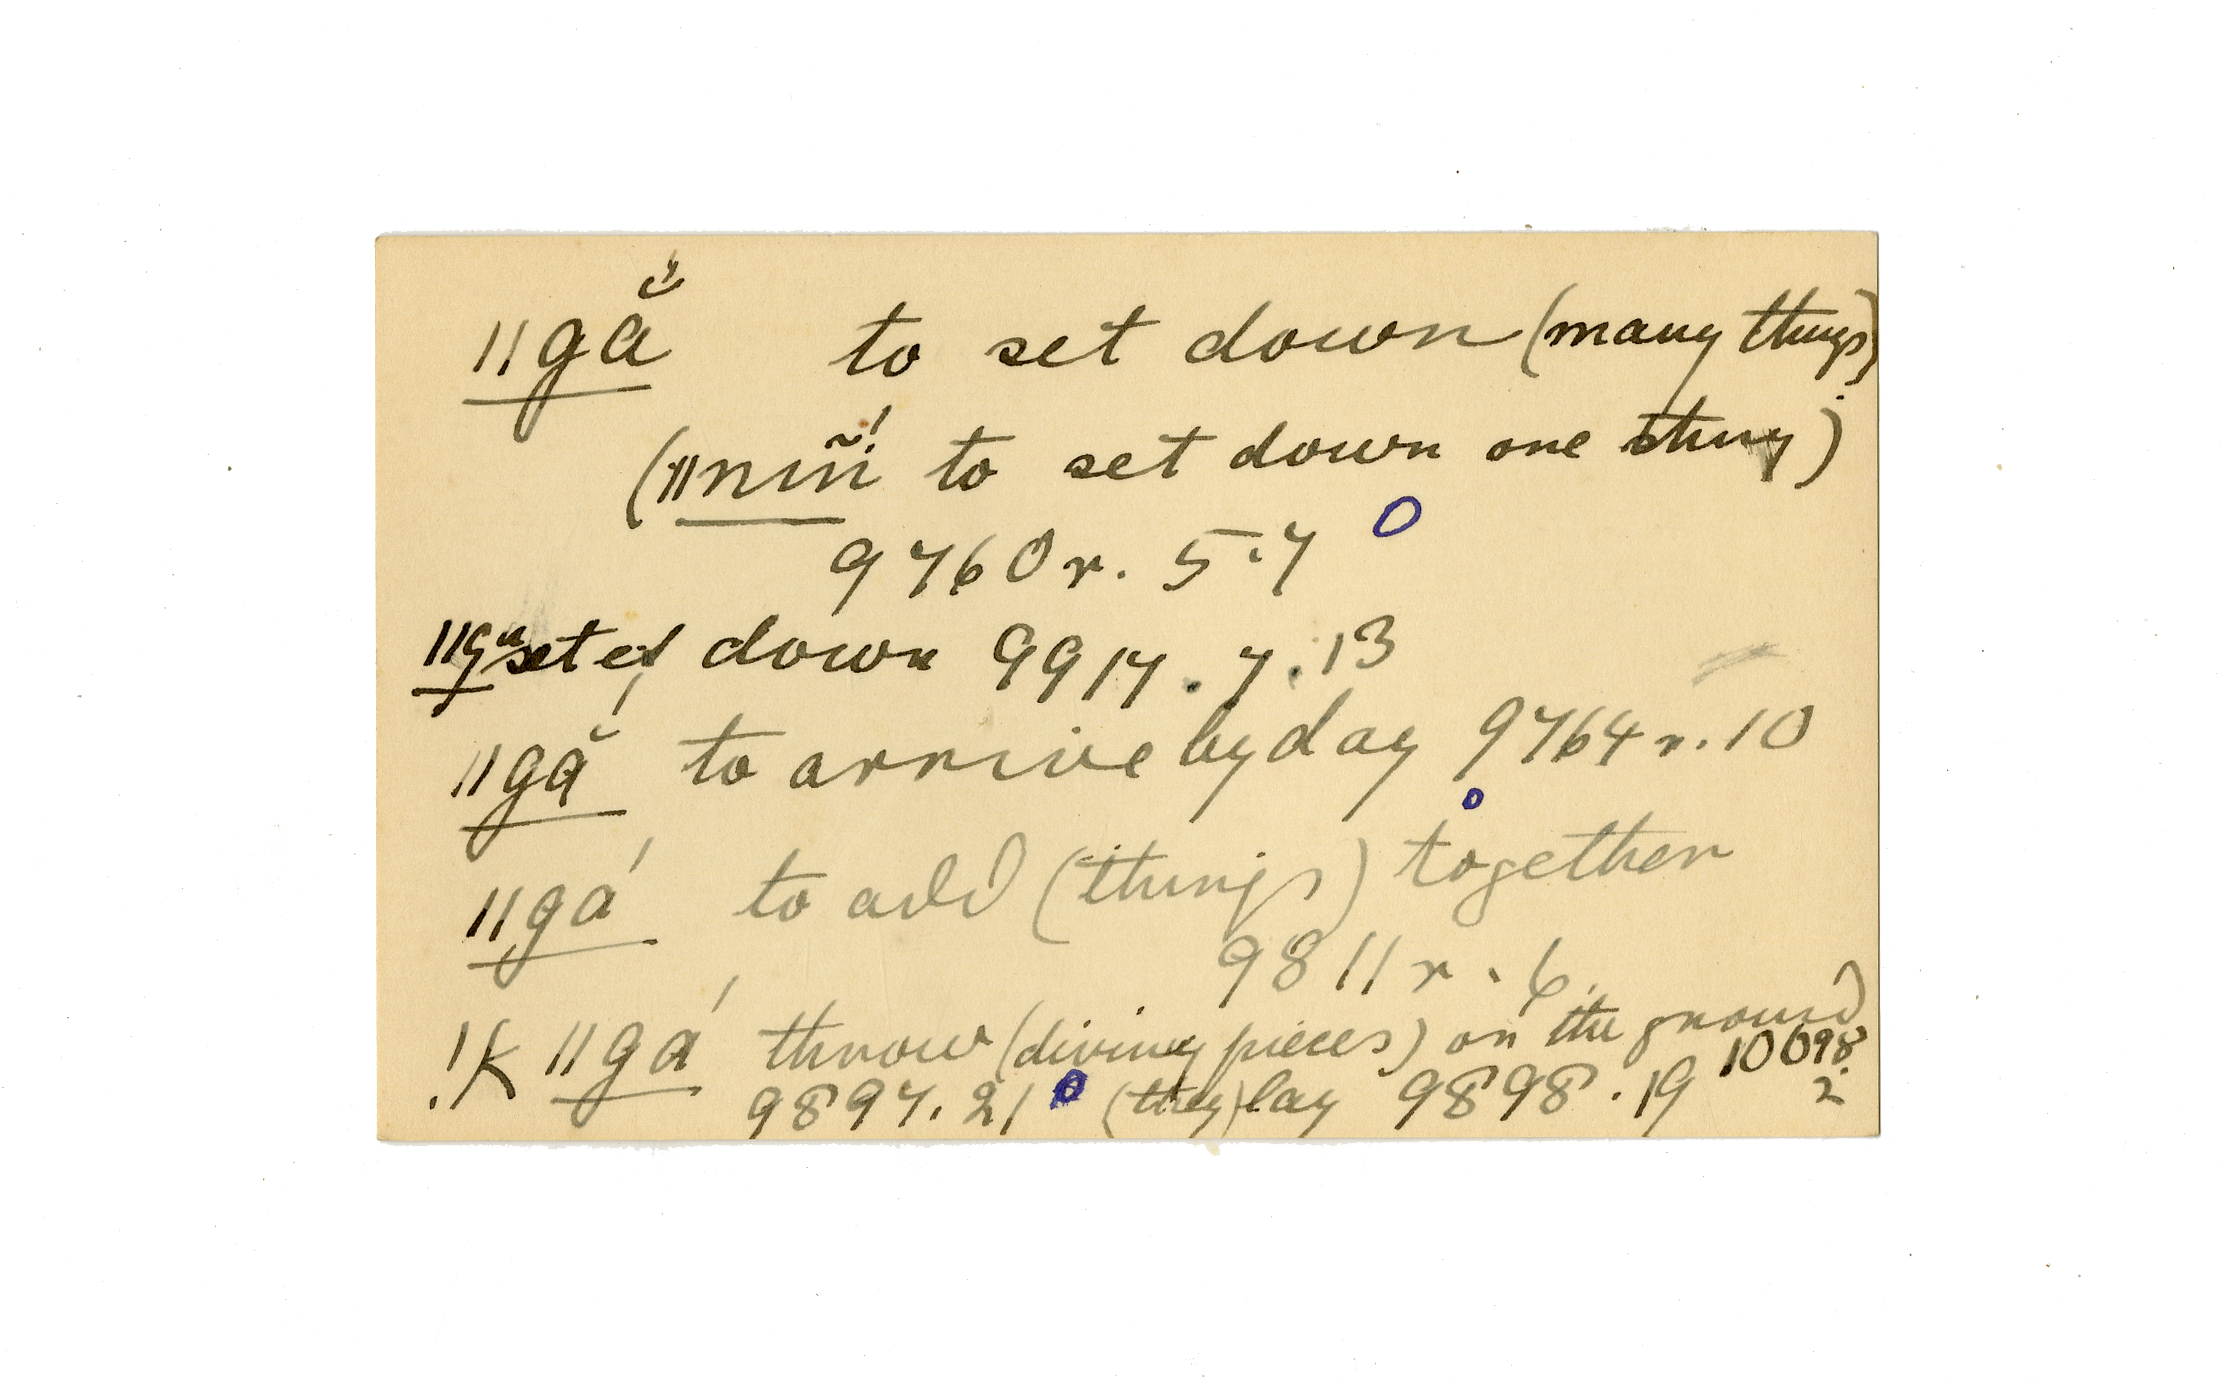 ǁgă̋ to set down (many things)
(ǁnin̄̃! to set down one thing)
9760r. 5.7
ǁga set et down 9917. 7. 13
ǁgắ to arrive by day 9764r. 10
ǁgá to add (things) together
9811r. 6.
!k ǁgá throw (divining pieces) on the ground
9897. 21 (they) lay 9898. 19 10098.
2